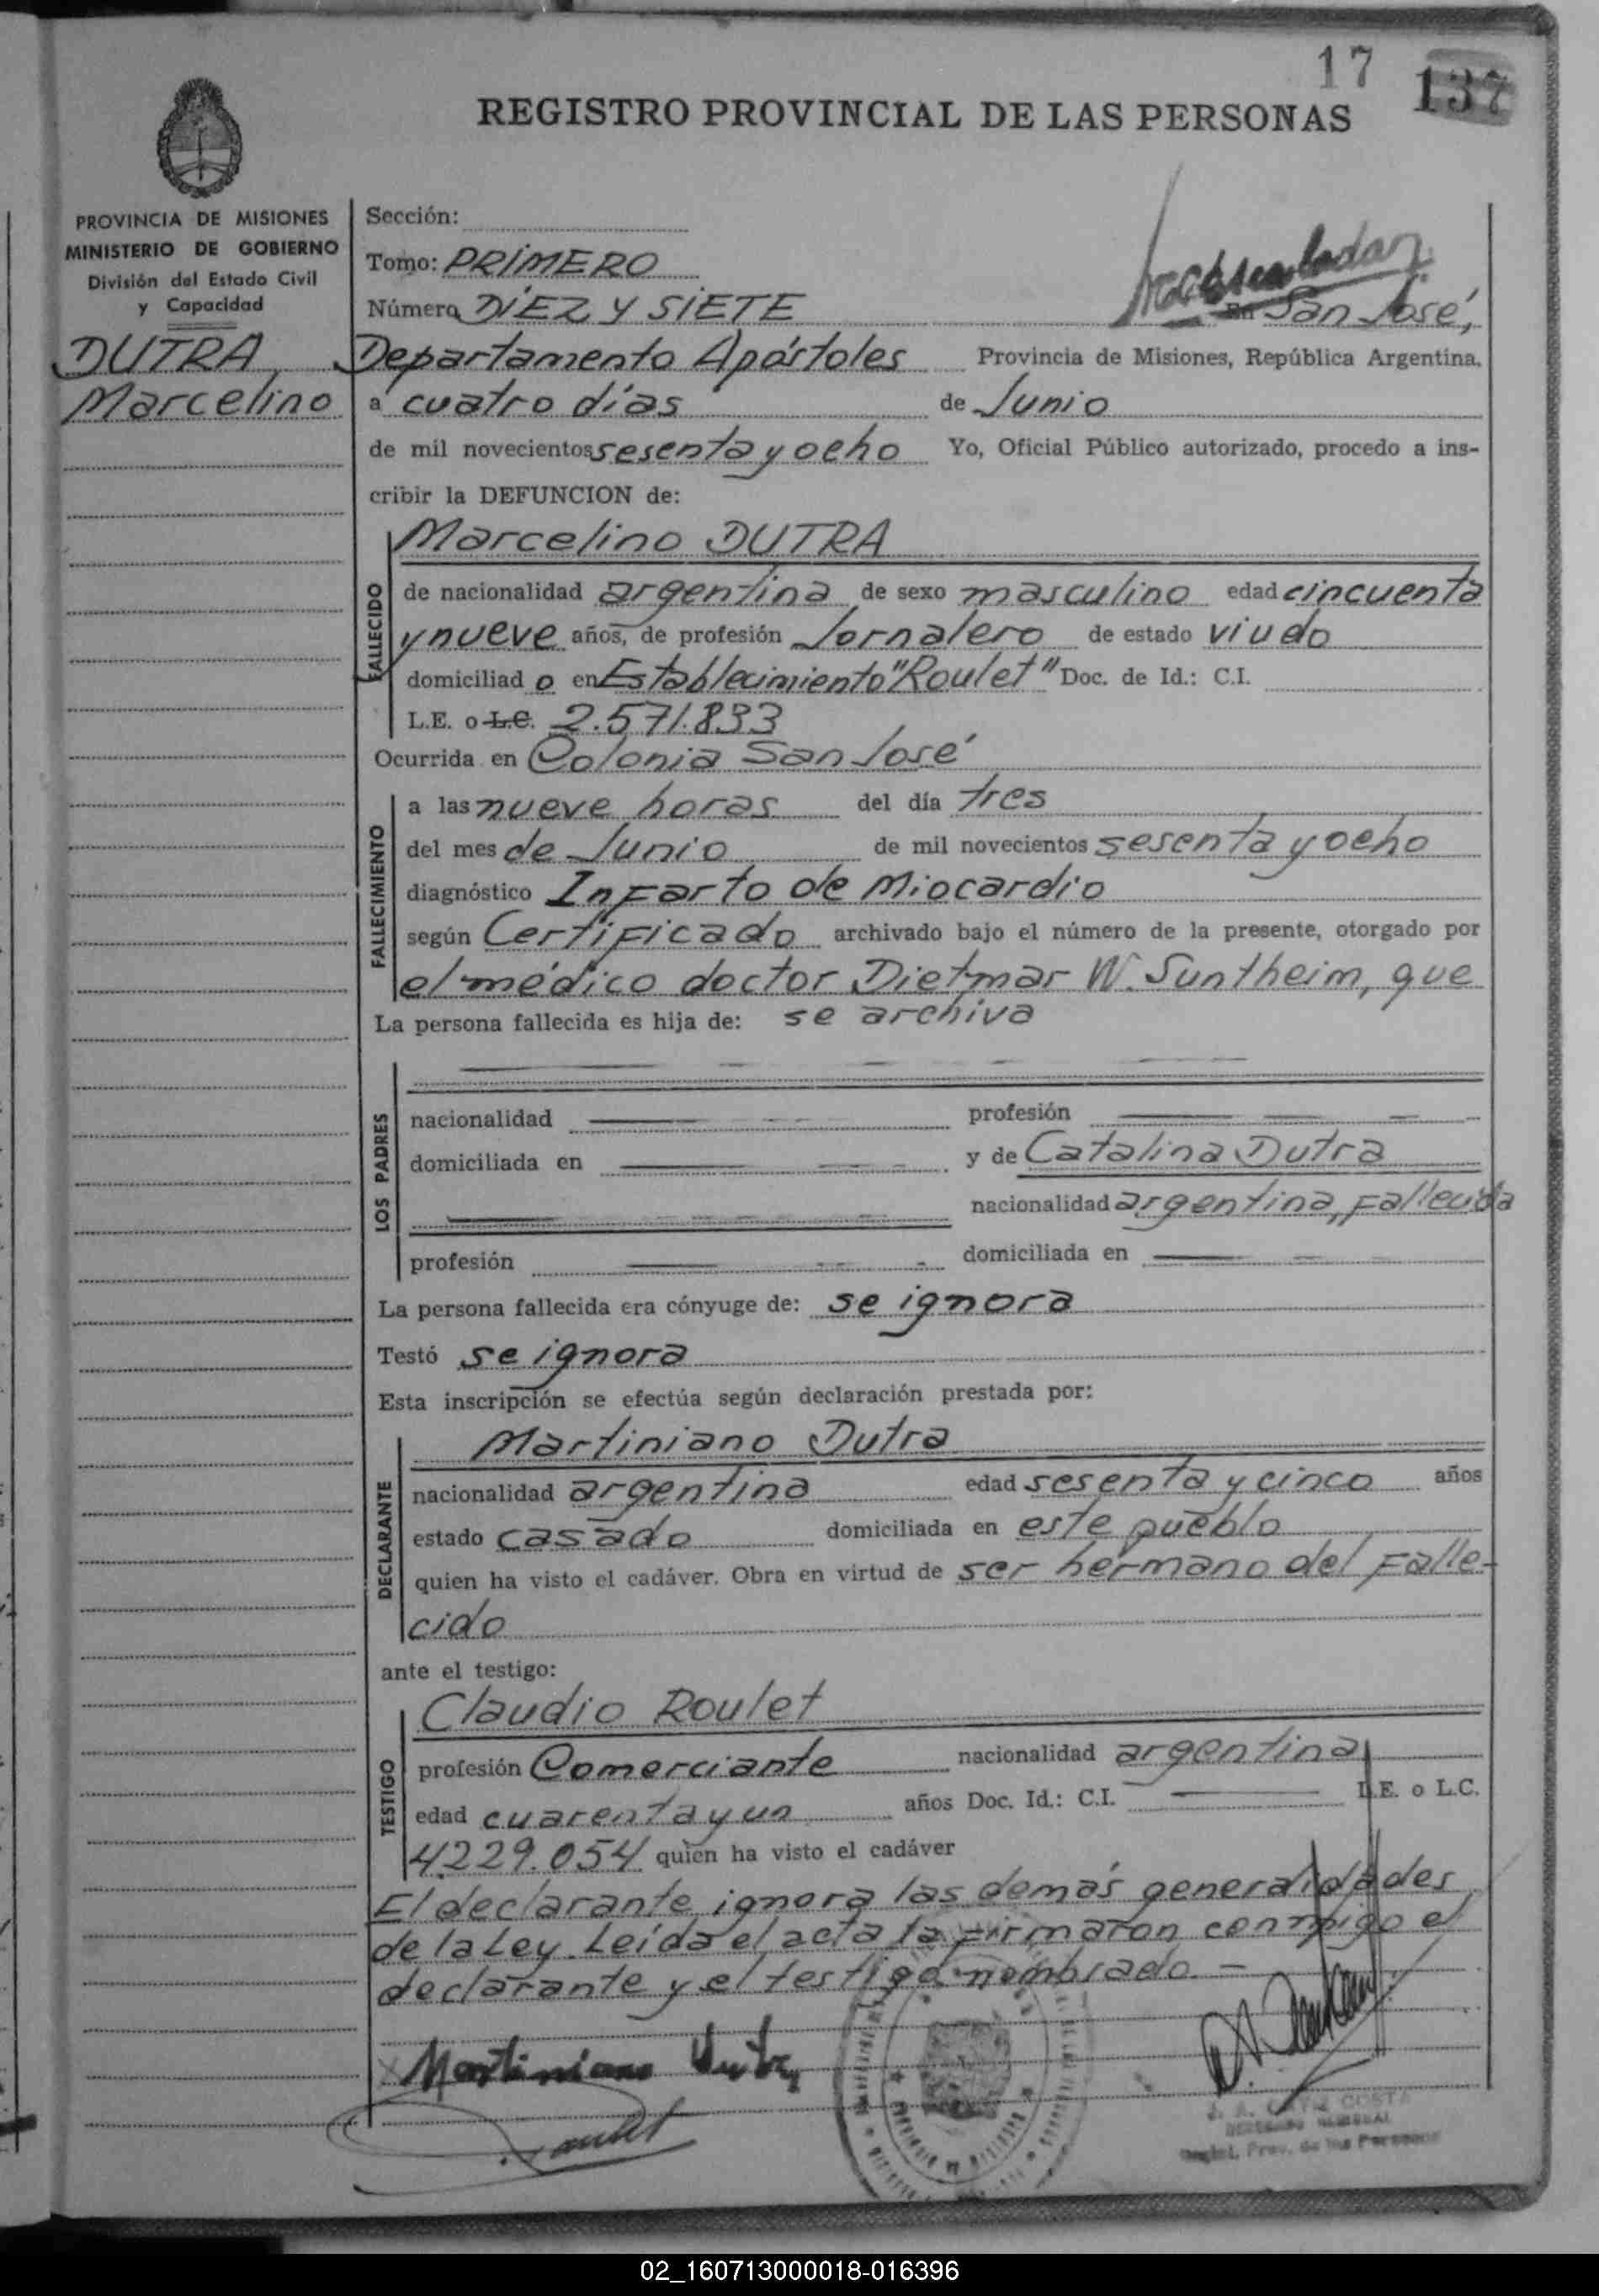 17 137
REGISTRO PROVINCIAL DE LAS PERSONAS
PROVINCIA DE MISIONES
MINISTERIO DE GOBIERNO
División del Estado Civil
y Capacidad
DUTRA,
Marcelino
Sección:
Tomo: PRIMERO
Número DIEZ Y SIETE En San José,
Departamento Apóstoles Provincia de Misiones, República Argentina,
a cuatro días de Junio
de mil novecientos sesenta y ocho Yo, Oficial Público autorizado, procedo a ins-
cribir la DEFUNCION de:
FALLECIDO
Marcelino DUTRA
de nacionalidad argentina de sexo masculino edad cincuenta
y nueve años, de profesión Jornalero de estado viudo
domiciliado en Establecimiento "Roulet" Doc. de Id.: C.I.
L.E. o L.C. 2.571.833
Ocurrida en Colonia San José
FALLECIMIENTO
a las nueve horas del día tres
del mes de Junio de mil novecientos sesenta y ocho
diagnóstico Infarto de Miocardio
según Certificado archivado bajo el número de la presente, otorgado por
el médico doctor Dietmar W. Suntheim, que
La persona fallecida es hija de: se archiva
LOS PADRES
nacionalidad profesión
domiciliada en y de Catalina Dutra
nacionalidad argentina, fallecida
profesión domiciliada en
La persona fallecida era cónyuge de: se ignora
Testó se ignora
Esta inscripción se efectúa según declaración prestada por:
DECLARANTE
Martiniano Dutra
nacionalidad argentina edad sesenta y cinco años
estado casado domiciliada en este pueblo
quien ha visto el cadáver. Obra en virtud de ser hermano del falle-
cido
ante el testigo:
TESTIGO
Claudio Roulet
profesión Comerciante nacionalidad argentina
edad cuarenta y un años Doc. Id.: C.I. L.E. o L.C.
4.229.054 quien ha visto el cadáver
El declarante ignora las demás generalidades
de la Ley. Leída el acta la firmaron conmigo el
declarante y el testigo nombrado. -
Martiniano Dutra
Roulet
COSTA
Prov. de las Personas
02_160713000018-016396